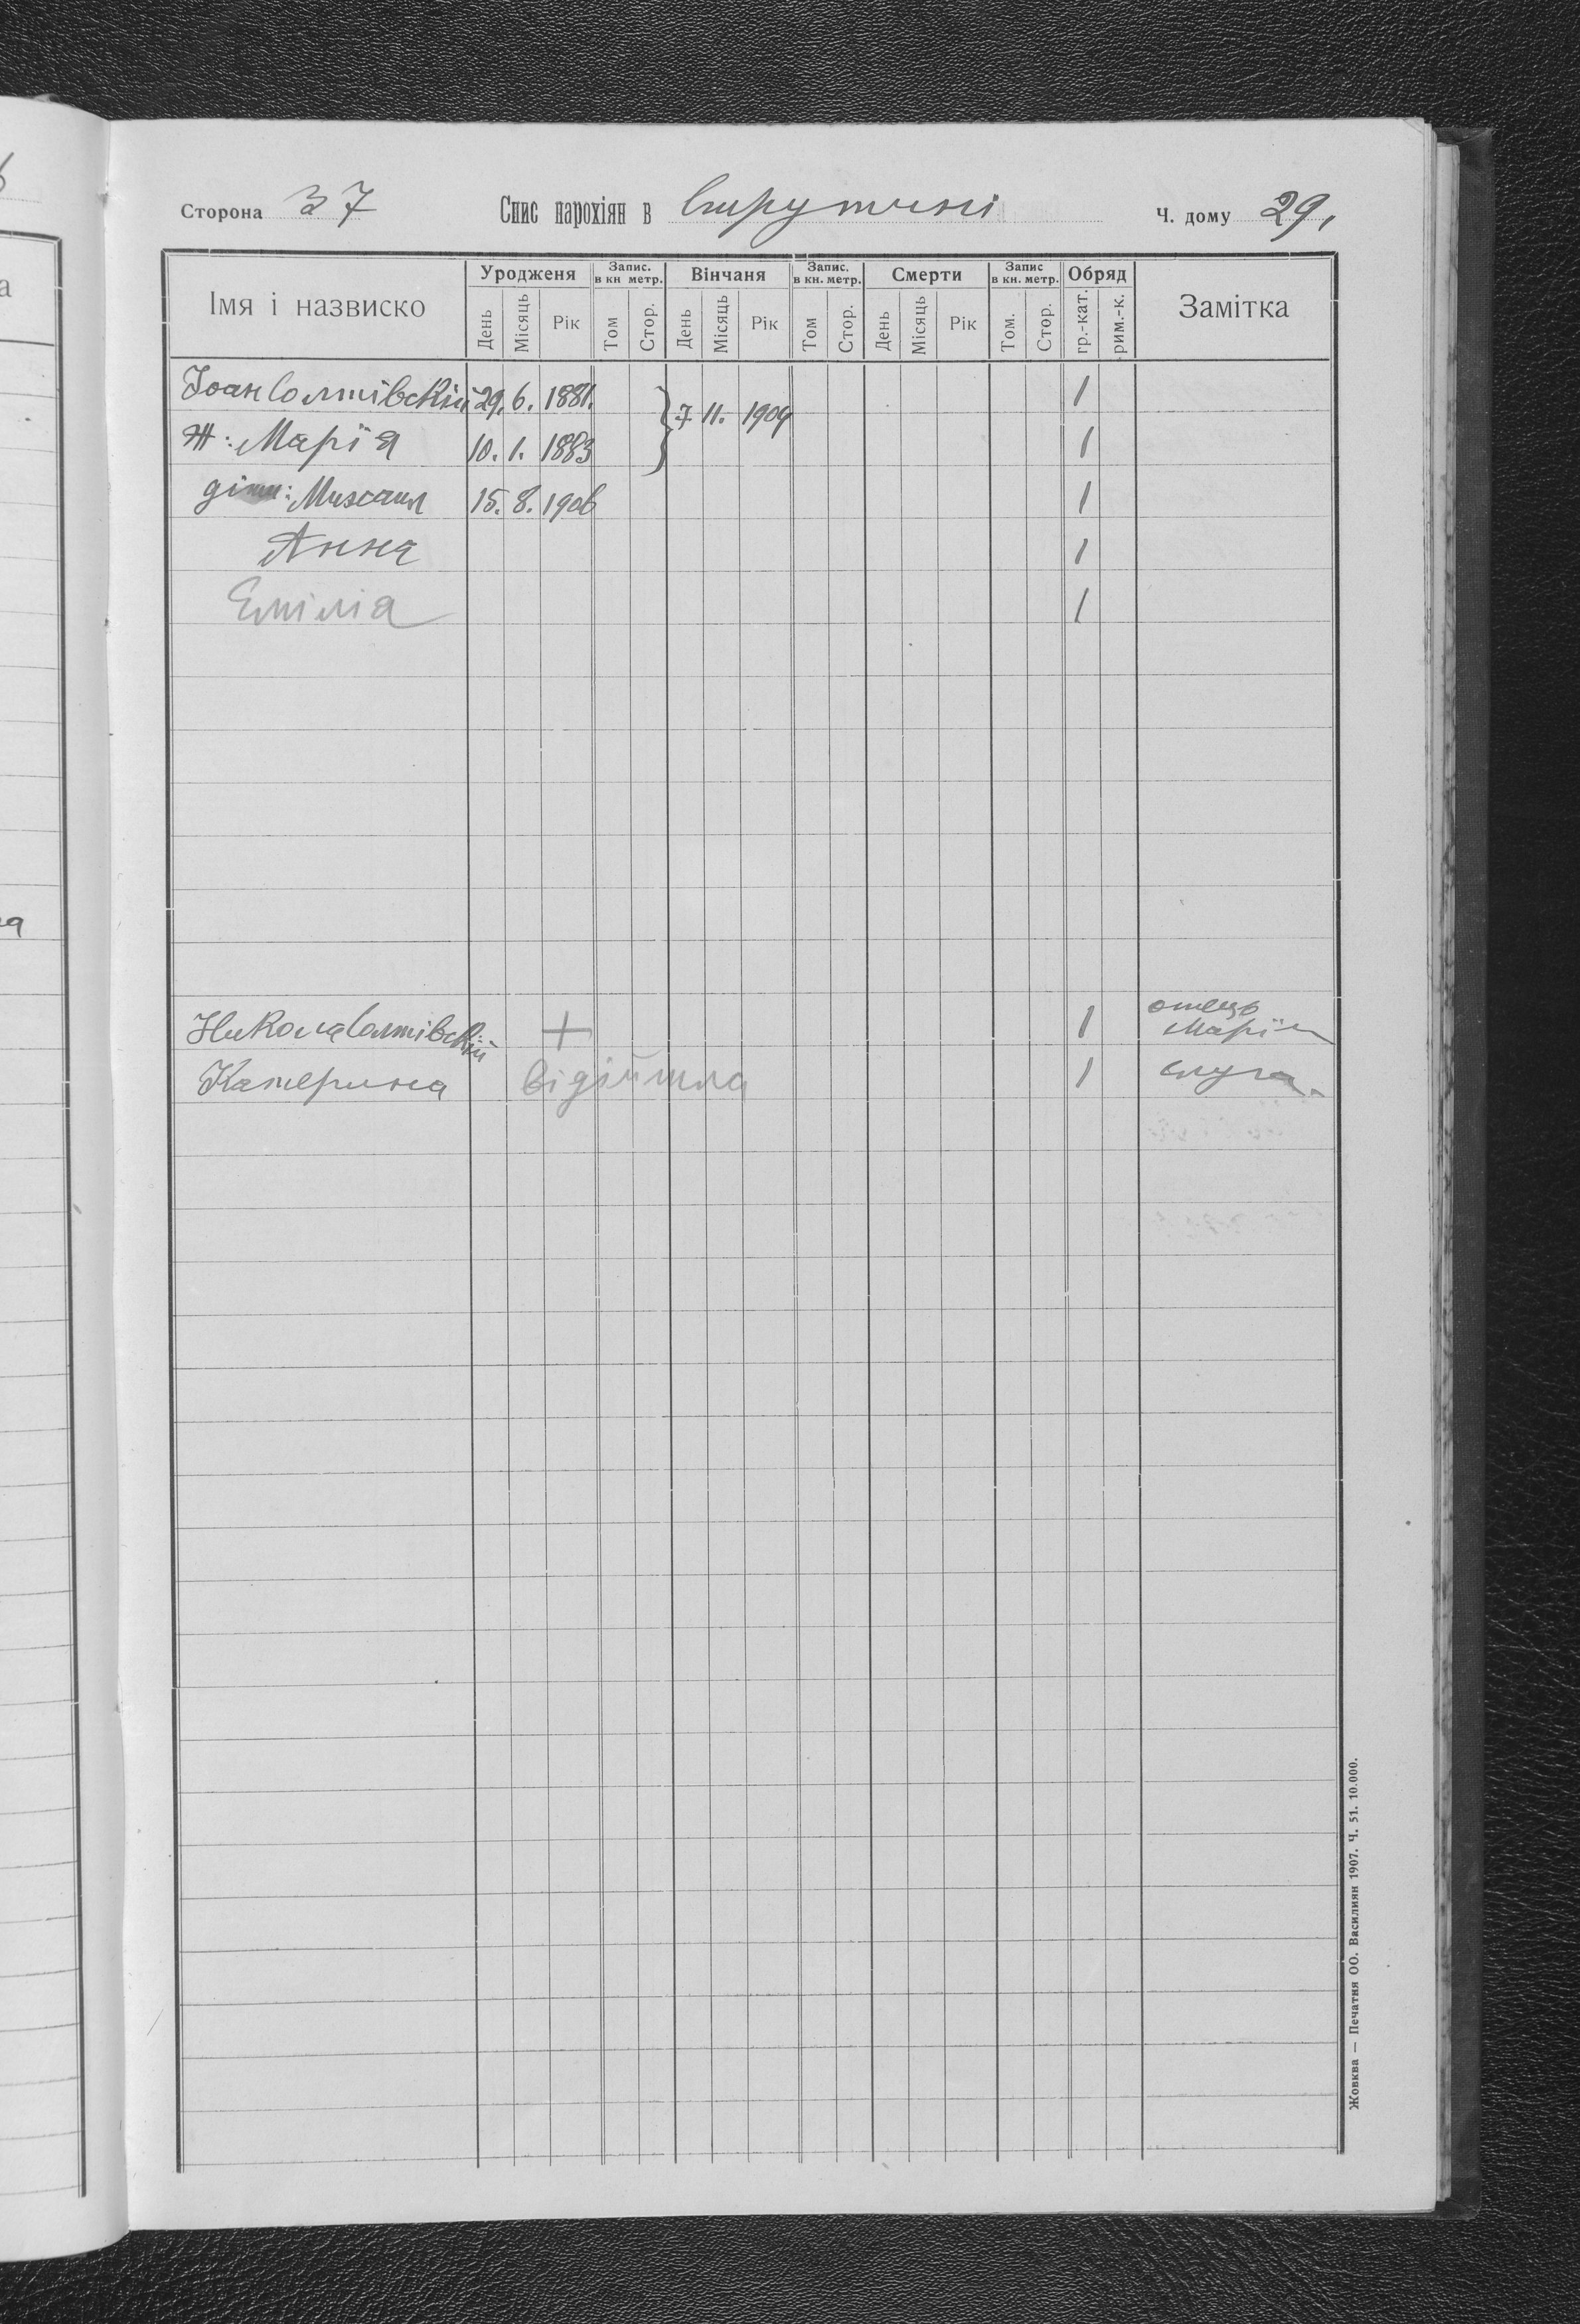 Сторона 37 Спис парохіян в Струтині Ч. дому 29,
Імя і назвиско Уродженя Запис. в кн метр. Вінчаня Запис. в кн. метр. Смерти Запис в кн. метр. Обряд Замітка
День Місяць Рік Том Стор. День Місяць Рік Том Стор. День Місяць Рік Том. Стор. гр.-кат. рим.-к.
Іоан 29. 6. 1881. 7 11. 1904 1
Ж: Марія 10. 1. 1883 1
діти: Михаил 15. 8. 1906 1
Анна 1
Емілія 1
Никола + 1 отець Марії
Катерина відійшла 1 слуга
Жовква — Печатня ОО. Василиян 1907. Ч. 51. 10.000.